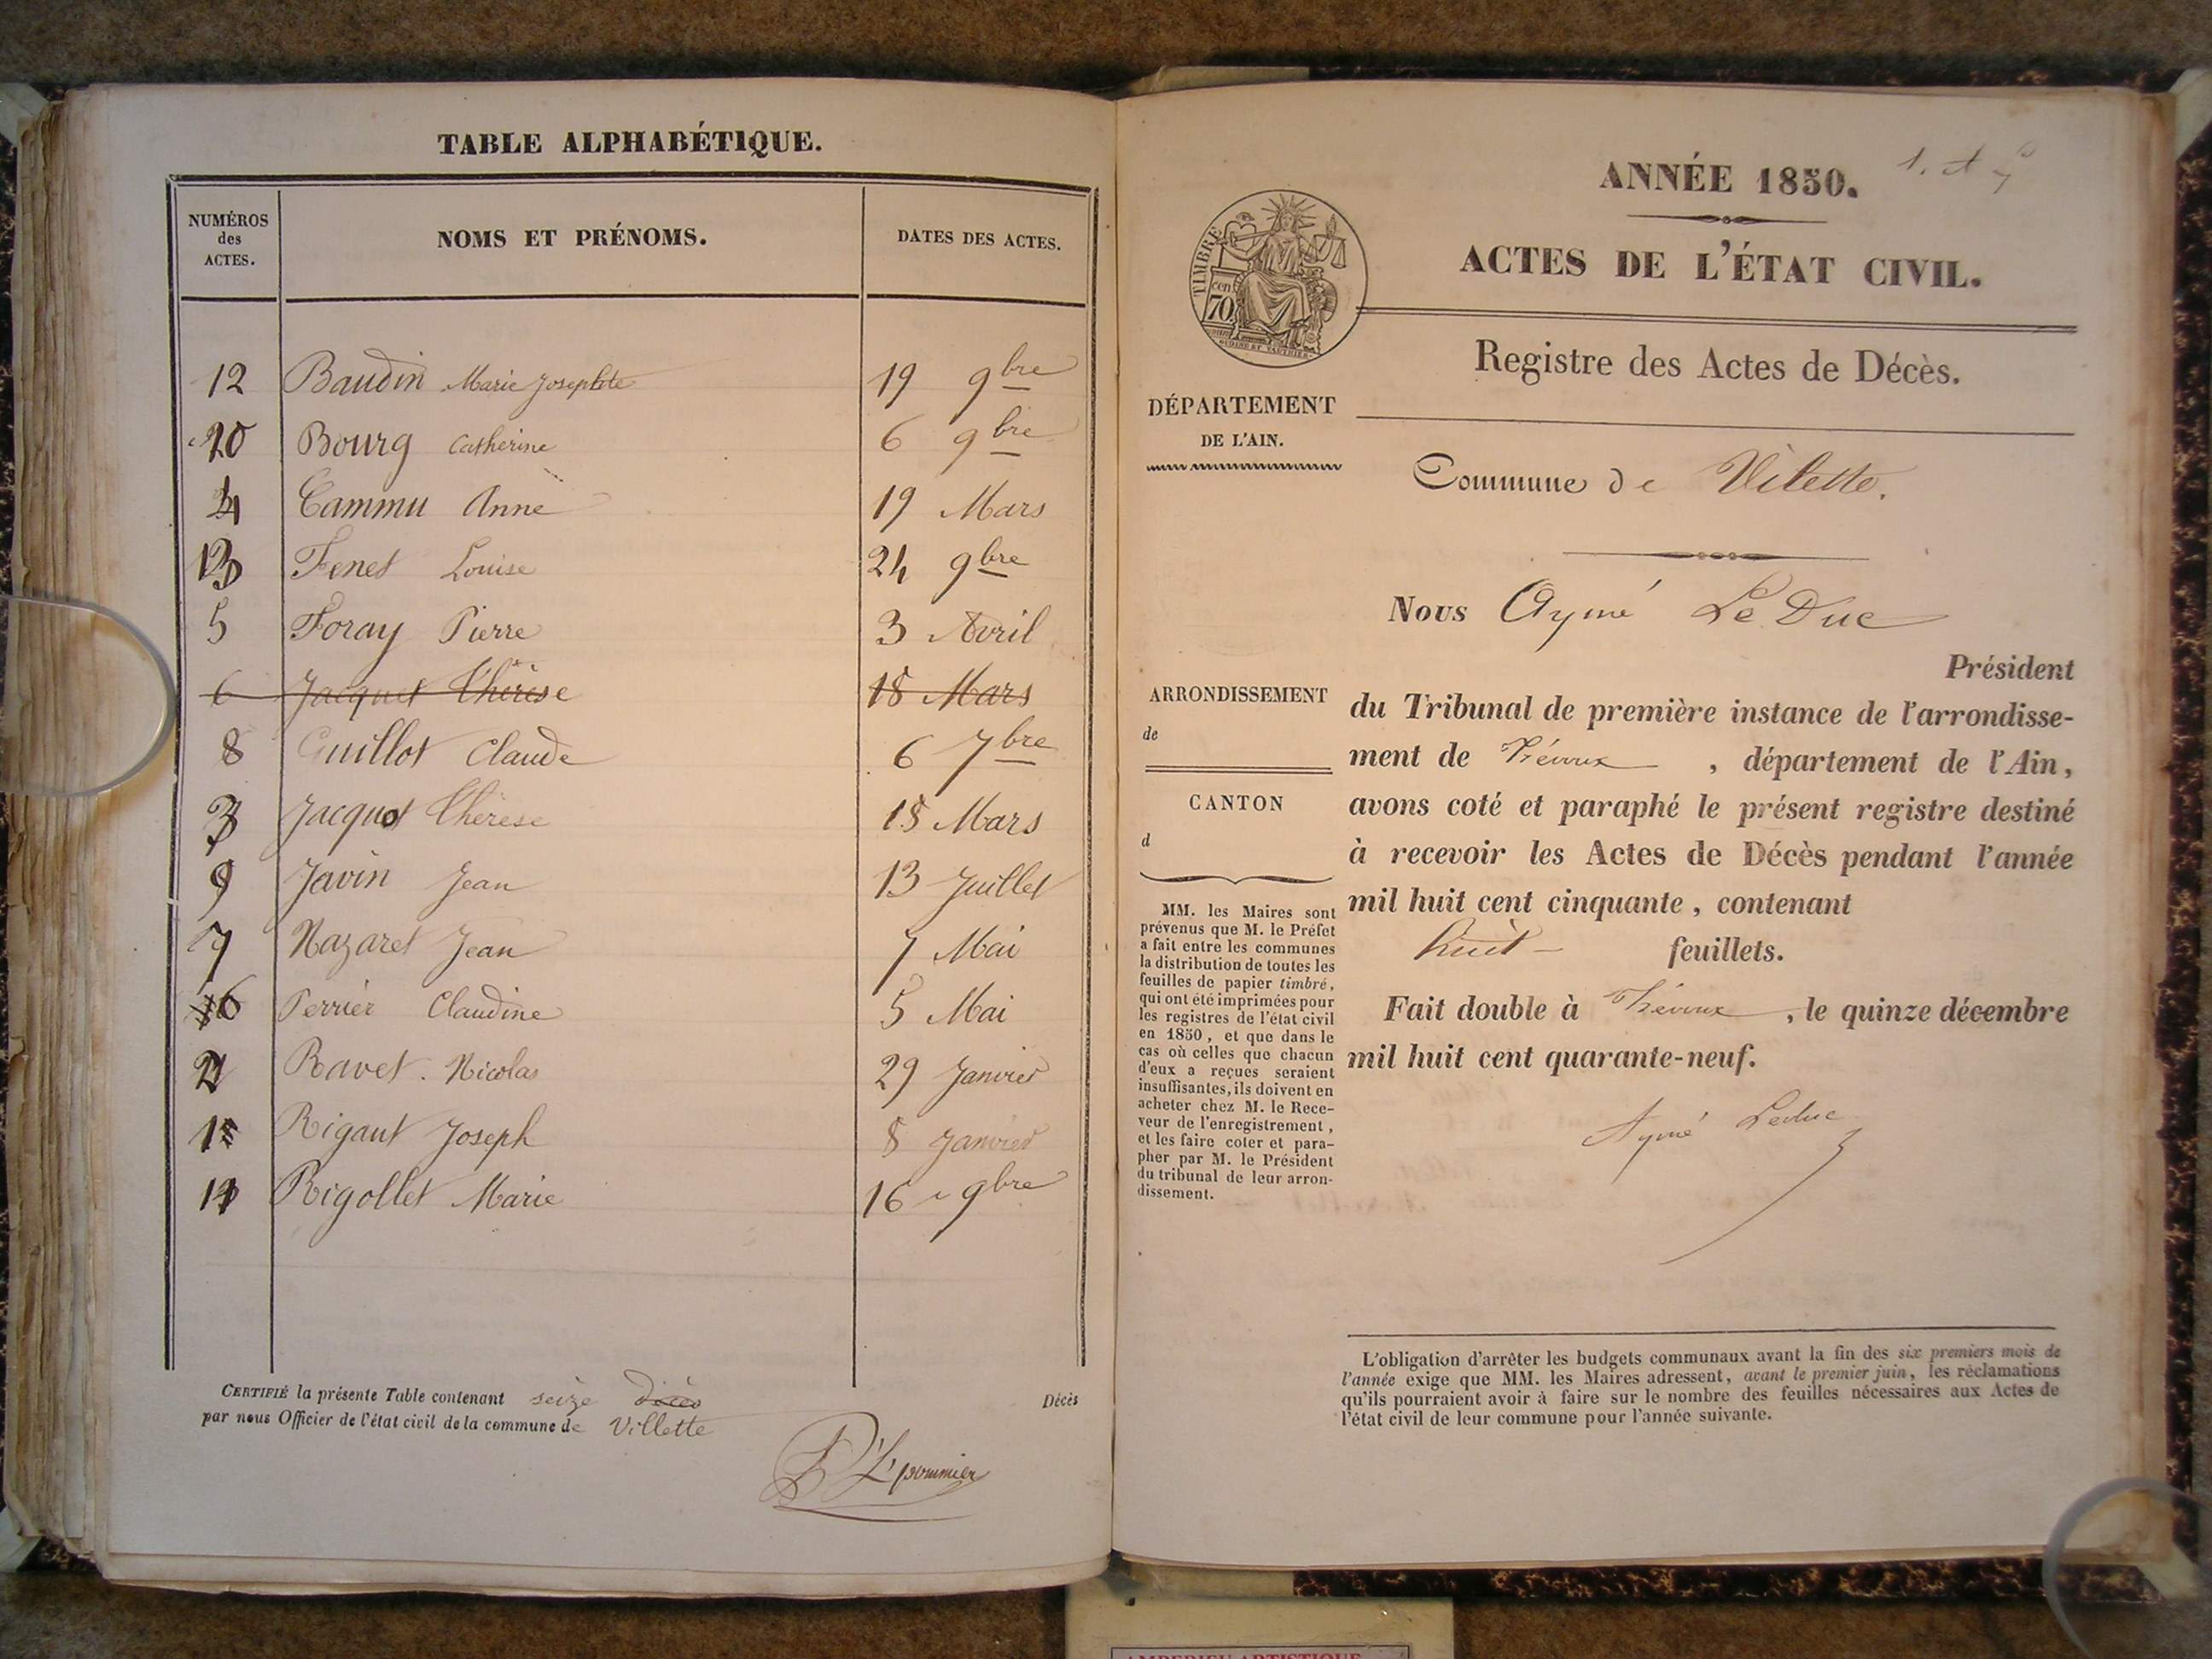 TABLE ALPHABÉTIQUE.
NUMÉROS des ACTES.
NOMS ET PRÉNOMS.
DATES DES ACTES.
12 Baudin Marie Josephte 19 9bre
10 Bourg Catherine 6 9bre
4 Cammu Anne 19 Mars
13 Fenet Louise 24 9bre
5 Foray Pierre 3 Avril
6 Jacquet Thérèse 18 Mars
8 Guillot Claude 6 7bre
3 Jacquet Thérèse 18 Mars
9 Javin Jean 13 Juillet
7 Nazaret Jean 7 Mai
6 Perrier Claudine 5 Mai
2 Ravet. Nicolas 29 Janvier
1 Rigaut Joseph 8 Janvier
11 Rigollet Marie 16 9bre
CERTIFIÉ la présente Table contenant seize Décès Décès
par nous Officier de l'état civil de la commune de Villette
ANNÉE 1850.
ACTES DE L'ÉTAT CIVIL.
TIMBRE
70 cen
Registre des Actes de Décès.
DÉPARTEMENT
DE L'AIN.
Commune de Vilette.
Nous Aymé Le Duc
Président
ARRONDISSEMENT
de
CANTON
d
du Tribunal de première instance de l'arrondisse-
ment de Trévoux , département de l'Ain,
avons coté et paraphé le présent registre destiné
à recevoir les Actes de Décès pendant l'année
mil huit cent cinquante, contenant
huit feuillets.
Fait double à Trévoux , le quinze décembre
mil huit cent quarante-neuf.
Aymé Leduc
MM. les Maires sont
prévenus que M. le Préfet
a fait entre les communes
la distribution de toutes les
feuilles de papier timbré,
qui ont été imprimées pour
les registres de l'état civil
en 1850, et que dans le
cas où celles que chacun
d'eux a reçues seraient
insuffisantes, ils doivent en
acheter chez M. le Rece-
veur de l'enregistrement,
et les faire coter et para-
pher par M. le Président
du tribunal de leur arron-
dissement.
L'obligation d'arrêter les budgets communaux avant la fin des six premiers mois de
l'année exige que MM. les Maires adressent, avant le premier juin, les réclamations
qu'ils pourraient avoir à faire sur le nombre des feuilles nécessaires aux Actes de
l'état civil de leur commune pour l'année suivante.